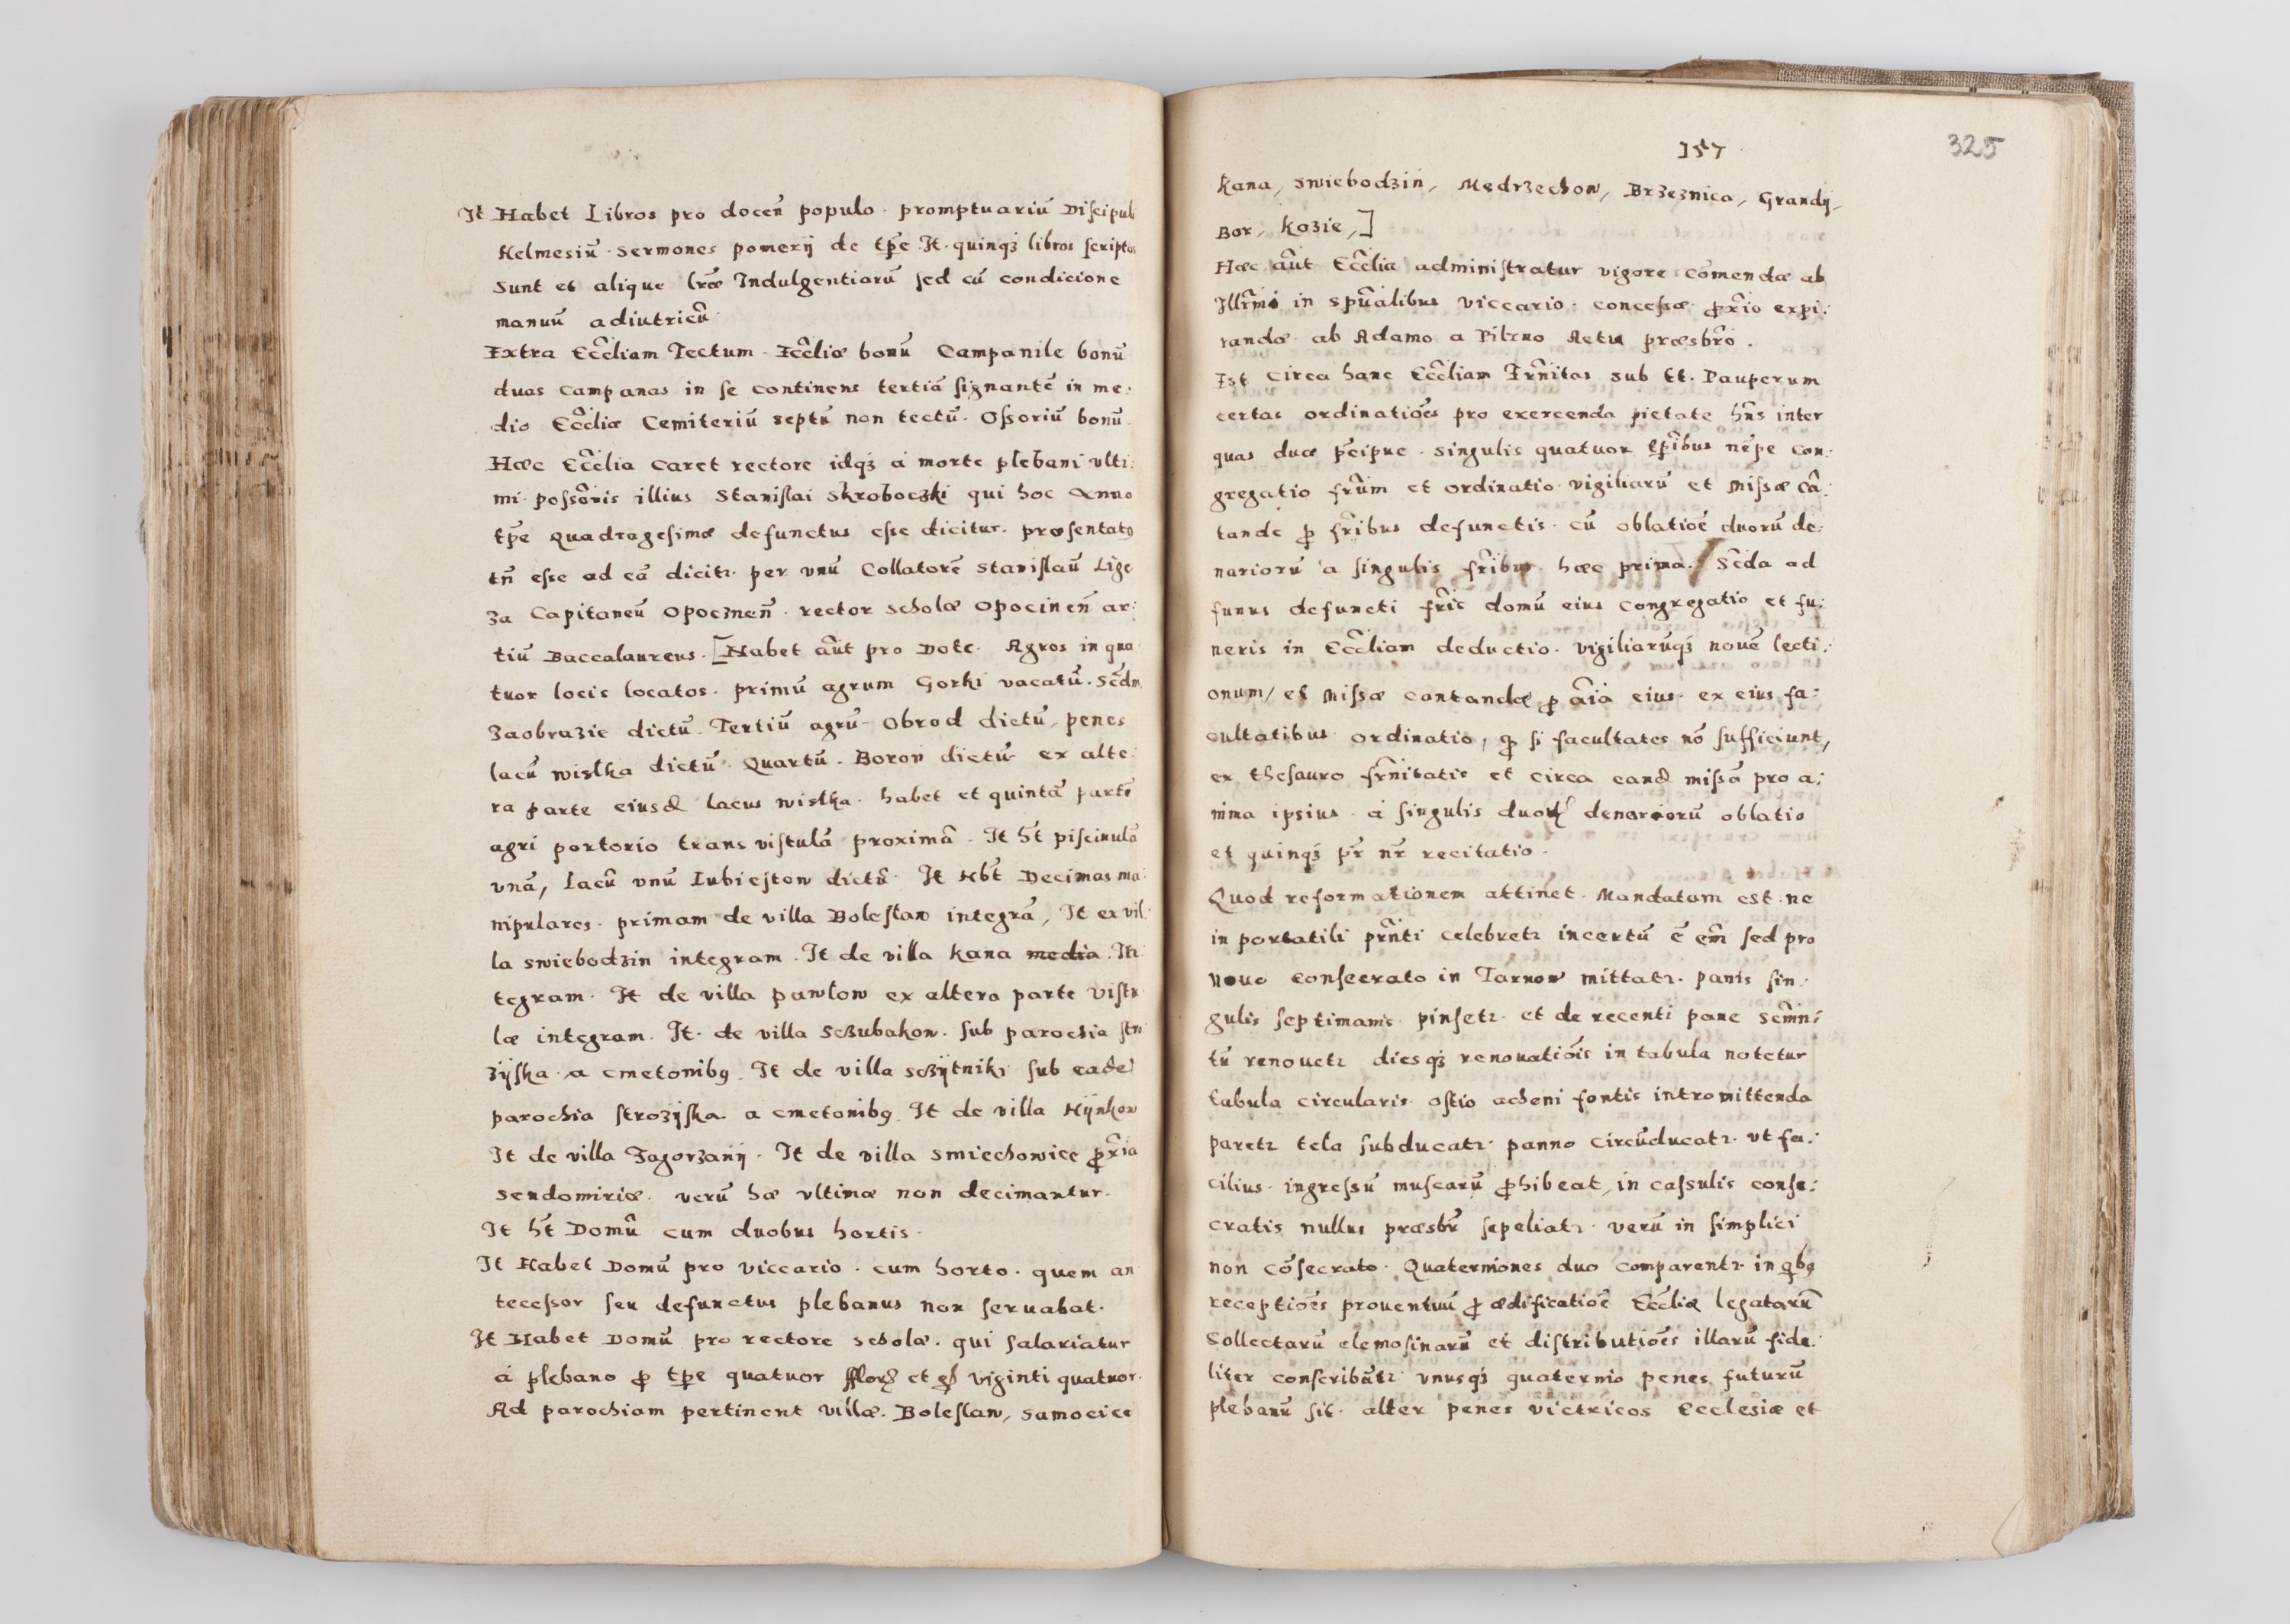 It Habet Libros pro doceñ populo. promptuariũ Discipuli
Helmesiũ. Sermones pomerij de tp̃e. It. quinqʒ libros scriptos
Sunt et alique lr̃æ Indulgentiarũ sed cũ condicione
manuũ adiutricũ.
Extra Ecc̃liam Tectum. Ecc̃liæ bonũ Campanile bonũ
duas Campanas in se continens tertiã signantẽ in me:
dio Ecc̃liæ Cemiteriũ septũ non tectũ. Ossoriũ bonũ.
Hæc Ecc̃lia caret rectore idqʒ à morte plebani vlti:
mi possõris illius Stanislai Skroboczki qui hoc Anno
tp̃e Quadragesimæ defunctus esse dicitur. præsentatꝰ
tñ esse ad eã dicitr. per vnũ Collatorẽ Stanislaũ Lige
za Capitaneũ Opocznen̄. rector scholæ Opocinen̄ ar:
tiũ Baccalaureus. [Habet aũt pro Dote. Agros in qua
tuor locis locatos. primũ agrum Gorki vacatũ. Scd̃m
Zaobrazie dictũ. Tertiũ agrũ Obrod dictũ, penes
lacũ wislka dictũ. Quartũ. Boron dictũ ex alte:
ra parte eiusd̃ lacus wislka. habet et quintã partẽ
agri portorio trans vistulã proximã. It ht̃ piscinulã
vnã, lacũ vnũ Lubiejton dictũ. It Hbt̃ Decimas ma:
nipulares. primam de villa Boleslaw integrã, It ex vil:
la swiebodzin integram. It de villa Kana media. In
tegram. It de villa pawlow ex altera parte Vistu
læ integram. It. de villa Sczubakow. sub parochia stro
zijska a cmetonibꝰ. It de villa sczijtniki sub eadẽ
parochia strozijska. a cmetonibꝰ. It de villa Hijnkow
It de villa Zagorzanij. It de villa smiechowice ꝓx̃ia
sendomiriæ. verũ hæ vltimæ non decimantur.
It ht̃ Domũ cum duobus hortis.
It Habet Domũ pro viccario. cum horto. quem an
tecessor seu defunctus plebanus non seruabat.
It Habet Domũ pro rectore scholæ. qui salariatur
à plebano ꝓ tp̃e quatuor fflorꝝ et gr̃ viginti quatuor.
Ad parochiam pertinent villæ. Boleslaw, samocice
157
325
Kana, swiebodzin, Mędrzechow, Brzeznica, Grandij,
Bor, Kozie,]
Hæc aũt Ecc̃lia administratur vigore cõmendæ ab
Illr̃mi in spũalibus viccario. concessæ ꝓx̃io expi:
randæ ab Adamo a Pilzno Actu præsbr̃o.
Est circa hanc Ecc̃liam Fr̃nitas sub tt. Pauperum
certas ordinatiões pro exercenda pietate hñs inter
quas duæ p̃cipue. singulis quatuor tp̃ibus nẽpe con:
gregatio fr̃um et ordinatio vigiliarũ et Missæ cã:
tande ꝓ fr̃ibus defunctis. cũ oblatiõe duorũ de:
nariorũ à singulis fr̃ibus. hæc prima. / Scd̃a ad
funus defuncti fr̃is domũ eius congregatio et fu:
neris in Ecc̃liam deductio. vigiliarũqʒ nouẽ lecti:
onum, et Missæ cantandæ ꝓ aĩa eius. ex eius fa:
cultatibus ordinatio, qđ si facultates nõ sufficiunt,
ex thesauro fr̃nitatis et circa eand̃ missã pro a:
nima ipsius à singulis duoꝝ denariorũ oblatio
et quinqʒ pr̃ nr̃ recitatio.
Quod reformationem attinet. Mandatum est. ne
in portatili pr̃nti celebretr incertũ ẽ em̃ sed pro
nouo consecrato in Tarnow mittatr. panis sin:
gulis septimanis pinsetr. et de recenti pane Scm̃:
tũ renouetr diesqʒ renouatiõis in tabula notetur
tabula circularis. ostio acheni fontis intromittenda
paretr tela subducatr. panno circũducatr. vt fa:
cilius. ingressũ muscarũ ꝓhibeat, in cassulis conse:
cratis nullus præsbr̃ sepeliatr. verũ in simplici
non cõsecrato. Quaterniones duo comparentr. in qbꝰ
receptiões prouentuũ ꝓ ædificatiõe Ecc̃liæ legatarũ
Collectarũ elemosinarũ et distributiões illarũ fide:
liter conscribãtr. vnusqʒ quaternio penes futurũ
plebanũ sit. alter penes victricos Ecclesiæ et